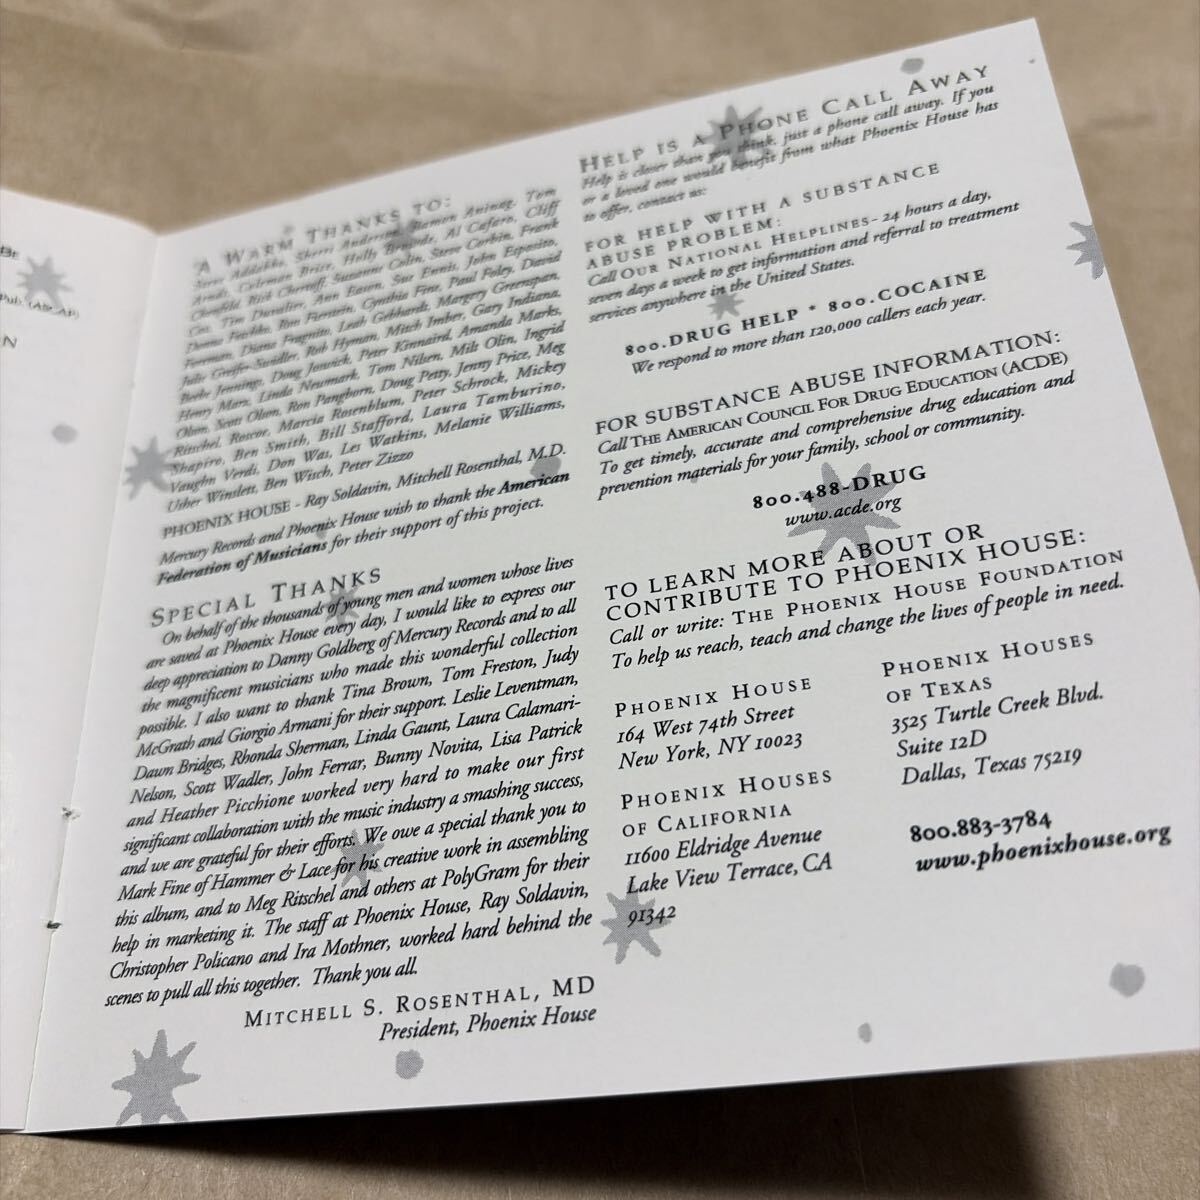 Be
Pub. (ASCAP)
N
A WARM THANKS TO:
Steve Addabbo, Sherri Anderson, Ramon Aninag, Tom
Arndt, Coleman Brice, Holly Browde, Al Cafaro, Cliff
Chenfeld, Rick Chertoff, Susanne Colin, Steve Corbin, Frank
Cox, Tim Duvalier, Ann Eason, Sue Ennis, John Esposito,
Donna Fischko, Ron Fierstein, Cynthia Fine, Paul Foley, David
Foreman, Diana Fragnito, Leah Gebhardt, Margery Greenspan,
Julie Greifer-Swidler, Rob Hyman, Mitch Imber, Gary Indiana,
Beebe Jennings, Doug Jowick, Peter Kinnaird, Amanda Marks,
Henry Marx, Linda Neumark, Tom Nilsen, Mils Olin, Ingrid
Olson, Scott Olson, Ron Pangborn, Doug Petty, Jenny Price, Meg
Ritschel, Roscoe, Marcia Rosenblum, Peter Schrock, Mickey
Shapiro, Ben Smith, Bill Stafford, Laura Tamburino,
Vaughn Verdi, Don Was, Les Watkins, Melanie Williams,
Usher Winslett, Ben Wisch, Peter Zizzo
PHOENIX HOUSE - Ray Soldavin, Mitchell Rosenthal, M.D.
Mercury Records and Phoenix House wish to thank the American
Federation of Musicians for their support of this project.
SPECIAL THANKS
On behalf of the thousands of young men and women whose lives
are saved at Phoenix House every day, I would like to express our
deep appreciation to Danny Goldberg of Mercury Records and to all
the magnificent musicians who made this wonderful collection
possible. I also want to thank Tina Brown, Tom Freston, Judy
McGrath and Giorgio Armani for their support. Leslie Leventman,
Dawn Bridges, Rhonda Sherman, Linda Gaunt, Laura Calamari-
Nelson, Scott Wadler, John Ferrar, Bunny Novita, Lisa Patrick
and Heather Picchione worked very hard to make our first
significant collaboration with the music industry a smashing success,
and we are grateful for their efforts. We owe a special thank you to
Mark Fine of Hammer & Lace for his creative work in assembling
this album, and to Meg Ritschel and others at PolyGram for their
help in marketing it. The staff at Phoenix House, Ray Soldavin,
Christopher Policano and Ira Mothner, worked hard behind the
scenes to pull all this together. Thank you all.
MITCHELL S. ROSENTHAL, MD
President, Phoenix House
HELP IS A PHONE CALL AWAY
Help is closer than you think, just a phone call away. If you
or a loved one would benefit from what Phoenix House has
to offer, contact us:
FOR HELP WITH A SUBSTANCE
ABUSE PROBLEM:
Call OUR NATIONAL HELPLINES- 24 hours a day,
seven days a week to get information and referral to treatment
services anywhere in the United States.
800.DRUG HELP * 800.COCAINE
We respond to more than 120,000 callers each year.
FOR SUBSTANCE ABUSE INFORMATION:
Call THE AMERICAN COUNCIL FOR DRUG EDUCATION (ACDE)
To get timely, accurate and comprehensive drug education and
prevention materials for your family, school or community.
800.488-DRUG
www.acde.org
TO LEARN MORE ABOUT OR
CONTRIBUTE TO PHOENIX HOUSE:
Call or write: THE PHOENIX HOUSE FOUNDATION
To help us reach, teach and change the lives of people in need.
PHOENIX HOUSE
164 West 74th Street
New York, NY 10023
PHOENIX HOUSES
OF CALIFORNIA
11600 Eldridge Avenue
Lake View Terrace, CA
91342
PHOENIX HOUSES
OF TEXAS
3525 Turtle Creek Blvd.
Suite 12D
Dallas, Texas 75219
800.883-3784
www.phoenixhouse.org